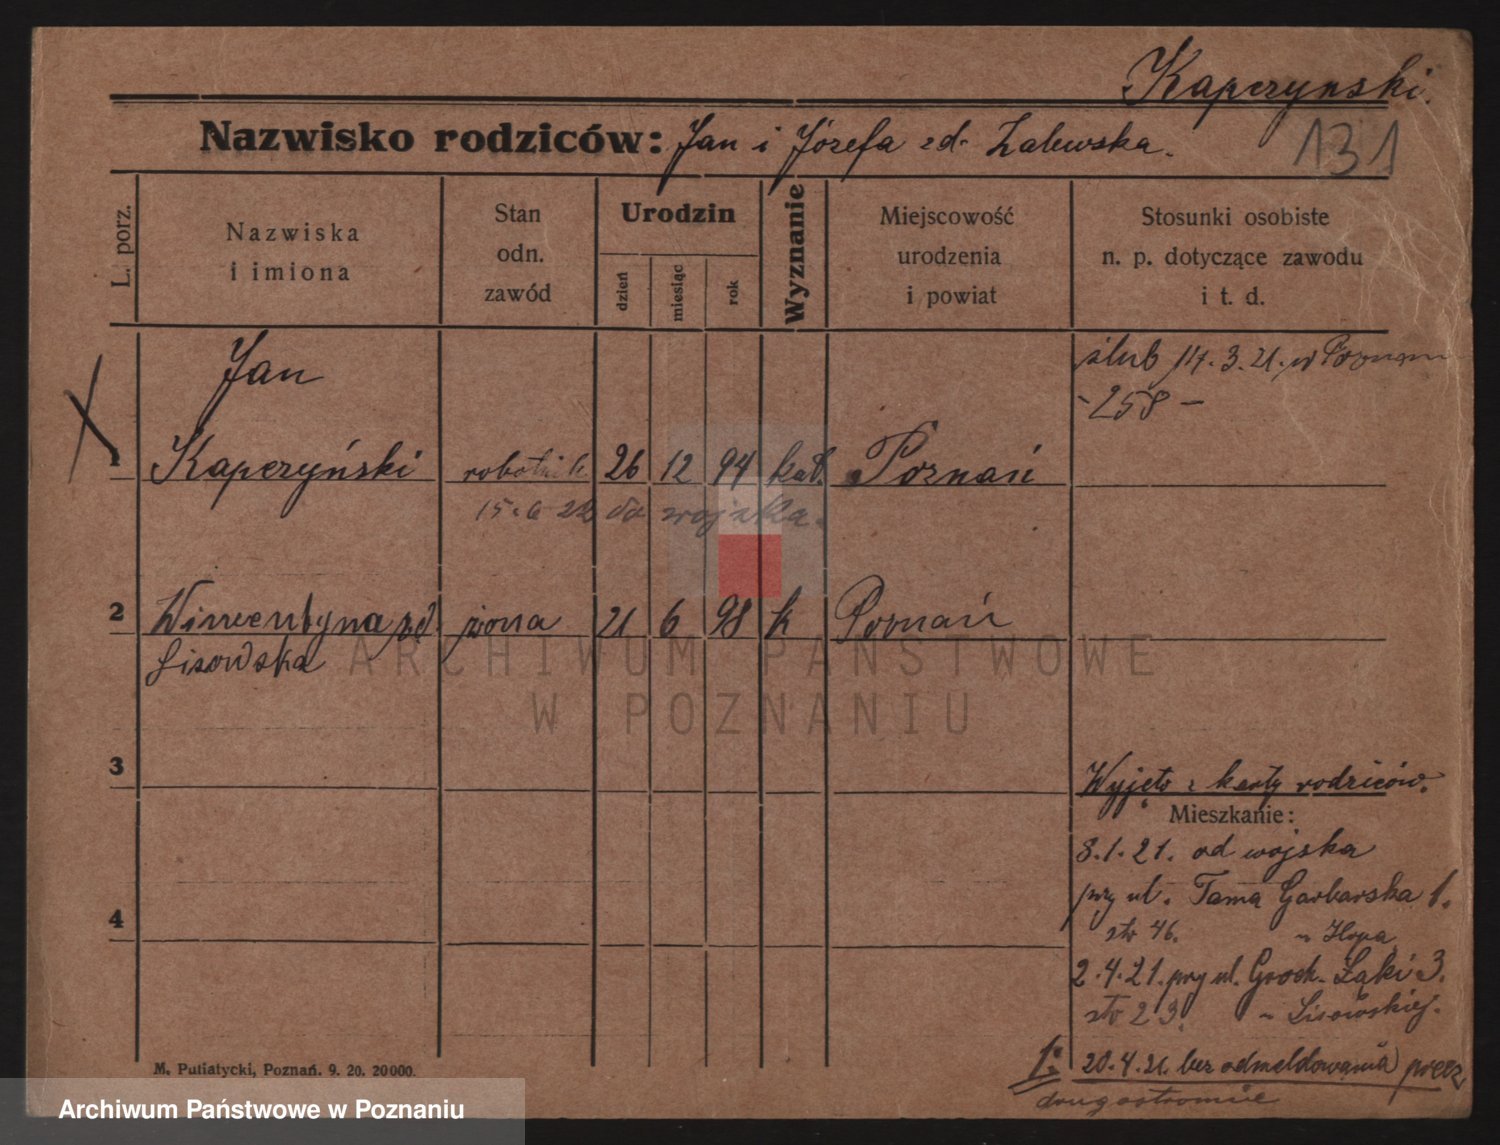 Kaperzynski.
Nazwisko rodziców: Jan i Józefa zd. Zalewska.
131
L. porz.
Nazwiska
i imiona
Stan
odn.
zawód
Urodzin
dzień
miesiąc
rok
Wyznanie
Miejscowość
urodzenia
i powiat
Stosunki osobiste
n. p. dotyczące zawodu
i t. d.
ślub 14.3.21. w Poznaniu
- 258 -
Jan
1 Kaperzyński robotnik 26 12 94 kat. Poznań
15.6 22 do wojska.
2 Wincentyna zd. żona 21 6 98 k Poznań
Lisowska
ARCHIWUM PAŃSTWOWE
W POZNANIU
3
Wyjęto z karty rodziców.
Mieszkanie:
8.1.21. od wojska
przy ul. Tama Garbarska 1.
str 46.
4
2.4.21. przy ul. Groch. Łąki 3.
str 23. Lisowskiej.
20.4.21. bez odmeldowania precz
drugostronnie
M. Putiatycki, Poznań. 9. 20. 20000.
Archiwum Państwowe w Poznaniu